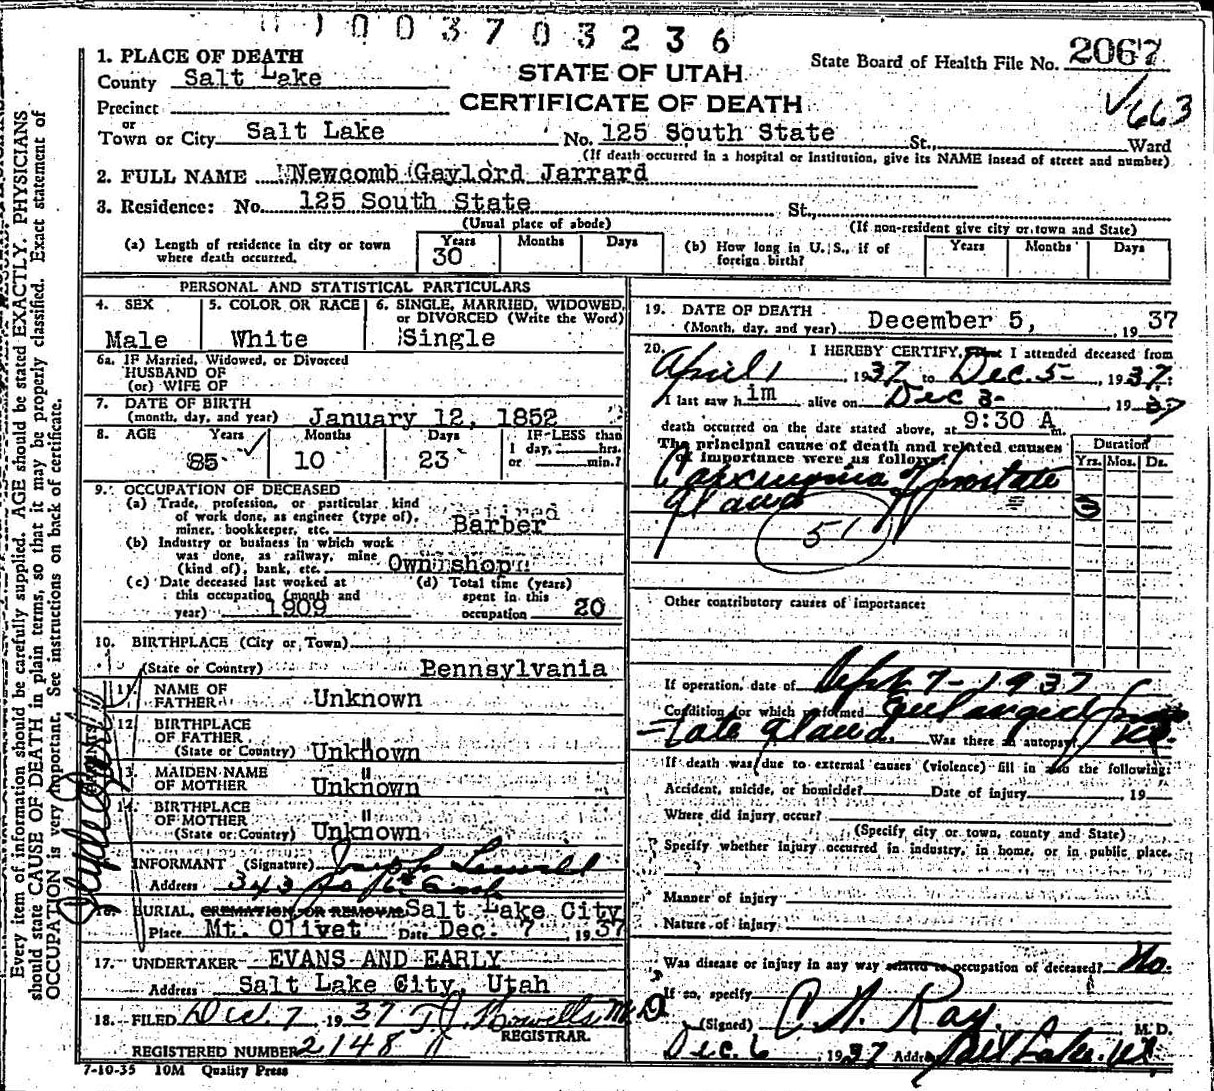 0 0 3 7 0 3 2 3 6
1. PLACE OF DEATH
County Salt Lake
STATE OF UTAH
State Board of Health File No. 2067
Precinct
CERTIFICATE OF DEATH
√663
or
Town or City Salt Lake No. 125 South State St., Ward
(If death occurred in a hospital or institution, give its NAME instead of street and number)
2. FULL NAME Newcomb Gaylord Jarrard
3. Residence: No. 125 South State St.,
(Usual place of abode) (If non-resident give city or town and State)
(a) Length of residence in city or town where death occurred. Years 30 Months Days (b) How long in U. S., if of foreign birth? Years Months Days
PERSONAL AND STATISTICAL PARTICULARS
4. SEX Male
5. COLOR OR RACE White
6. SINGLE, MARRIED, WIDOWED, or DIVORCED (Write the Word) Single
6a. IF Married, Widowed, or Divorced
HUSBAND OF
(or) WIFE OF
7. DATE OF BIRTH
(month, day, and year) January 12, 1852
8. AGE Years 85 Months 10 Days 23 IF LESS than 1 day, hrs. or min.?
9. OCCUPATION OF DECEASED
(a) Trade, profession, or particular kind
of work done, as engineer (type of),
miner, bookkeeper, etc. Retired Barber
(b) Industry or business in which work
was done, as railway, mine
(kind of), bank, etc. Own shop
(c) Date deceased last worked at
this occupation (month and
year) 1909
(d) Total time (years)
spent in this
occupation 20
10. BIRTHPLACE (City or Town)
(State or Country) Pennsylvania
11. NAME OF
FATHER Unknown
12. BIRTHPLACE
OF FATHER
(State or Country) Unknown
13. MAIDEN NAME
OF MOTHER Unknown
14. BIRTHPLACE
OF MOTHER
(State or Country) Unknown
INFORMANT (Signature) Joseph
Address 343 So 6th East
16. BURIAL, CREMATION, OR REMOVAL Salt Lake City
Place Mt. Olivet Date Dec. 7, 1937
17. UNDERTAKER EVANS AND EARLY
Address Salt Lake City, Utah
18. FILED Dec. 7 1937 T.J. Howells M.D.
REGISTRAR.
REGISTERED NUMBER 2148
7-10-35 10M Quality Press
19. DATE OF DEATH
(Month, day, and year) December 5, 1937
20. I HEREBY CERTIFY, That I attended deceased from
April 1 1937 to Dec. 5- 1937.
I last saw him alive on Dec 3- 1937
death occurred on the date stated above, at 9:30 A m.
The principal cause of death and related causes
of importance were as follows:
Duration
Yrs. Mos. Ds.
Carcinoma of prostate
gland
51
Other contributory causes of importance:
If operation, date of Sept 7-1937
Condition for which performed Enlarged pros-
tate gland Was there an autopsy?
If death was due to external causes (violence) fill in also the following:
Accident, suicide, or homicide? Date of injury 19
Where did injury occur?
(Specify city or town, county and State)
Specify whether injury occurred in industry, in home, or in public place.
Manner of injury
Nature of injury
Was disease or injury in any way related to occupation of deceased? No.
If so, specify
(Signed) C. H. Ray, M. D.
Dec. 6, 1937 Address Salt Lake, Ut
Every item of information should be carefully supplied. AGE should be stated EXACTLY. PHYSICIANS
should state CAUSE OF DEATH in plain terms, so that it may be properly classified. Exact statement of
OCCUPATION is very important. See instructions on back of certificate.
PARENTS